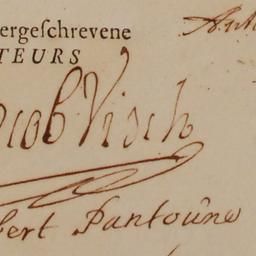 ergeſchrevene
TEURS
cob Visch
bert Pantoûne